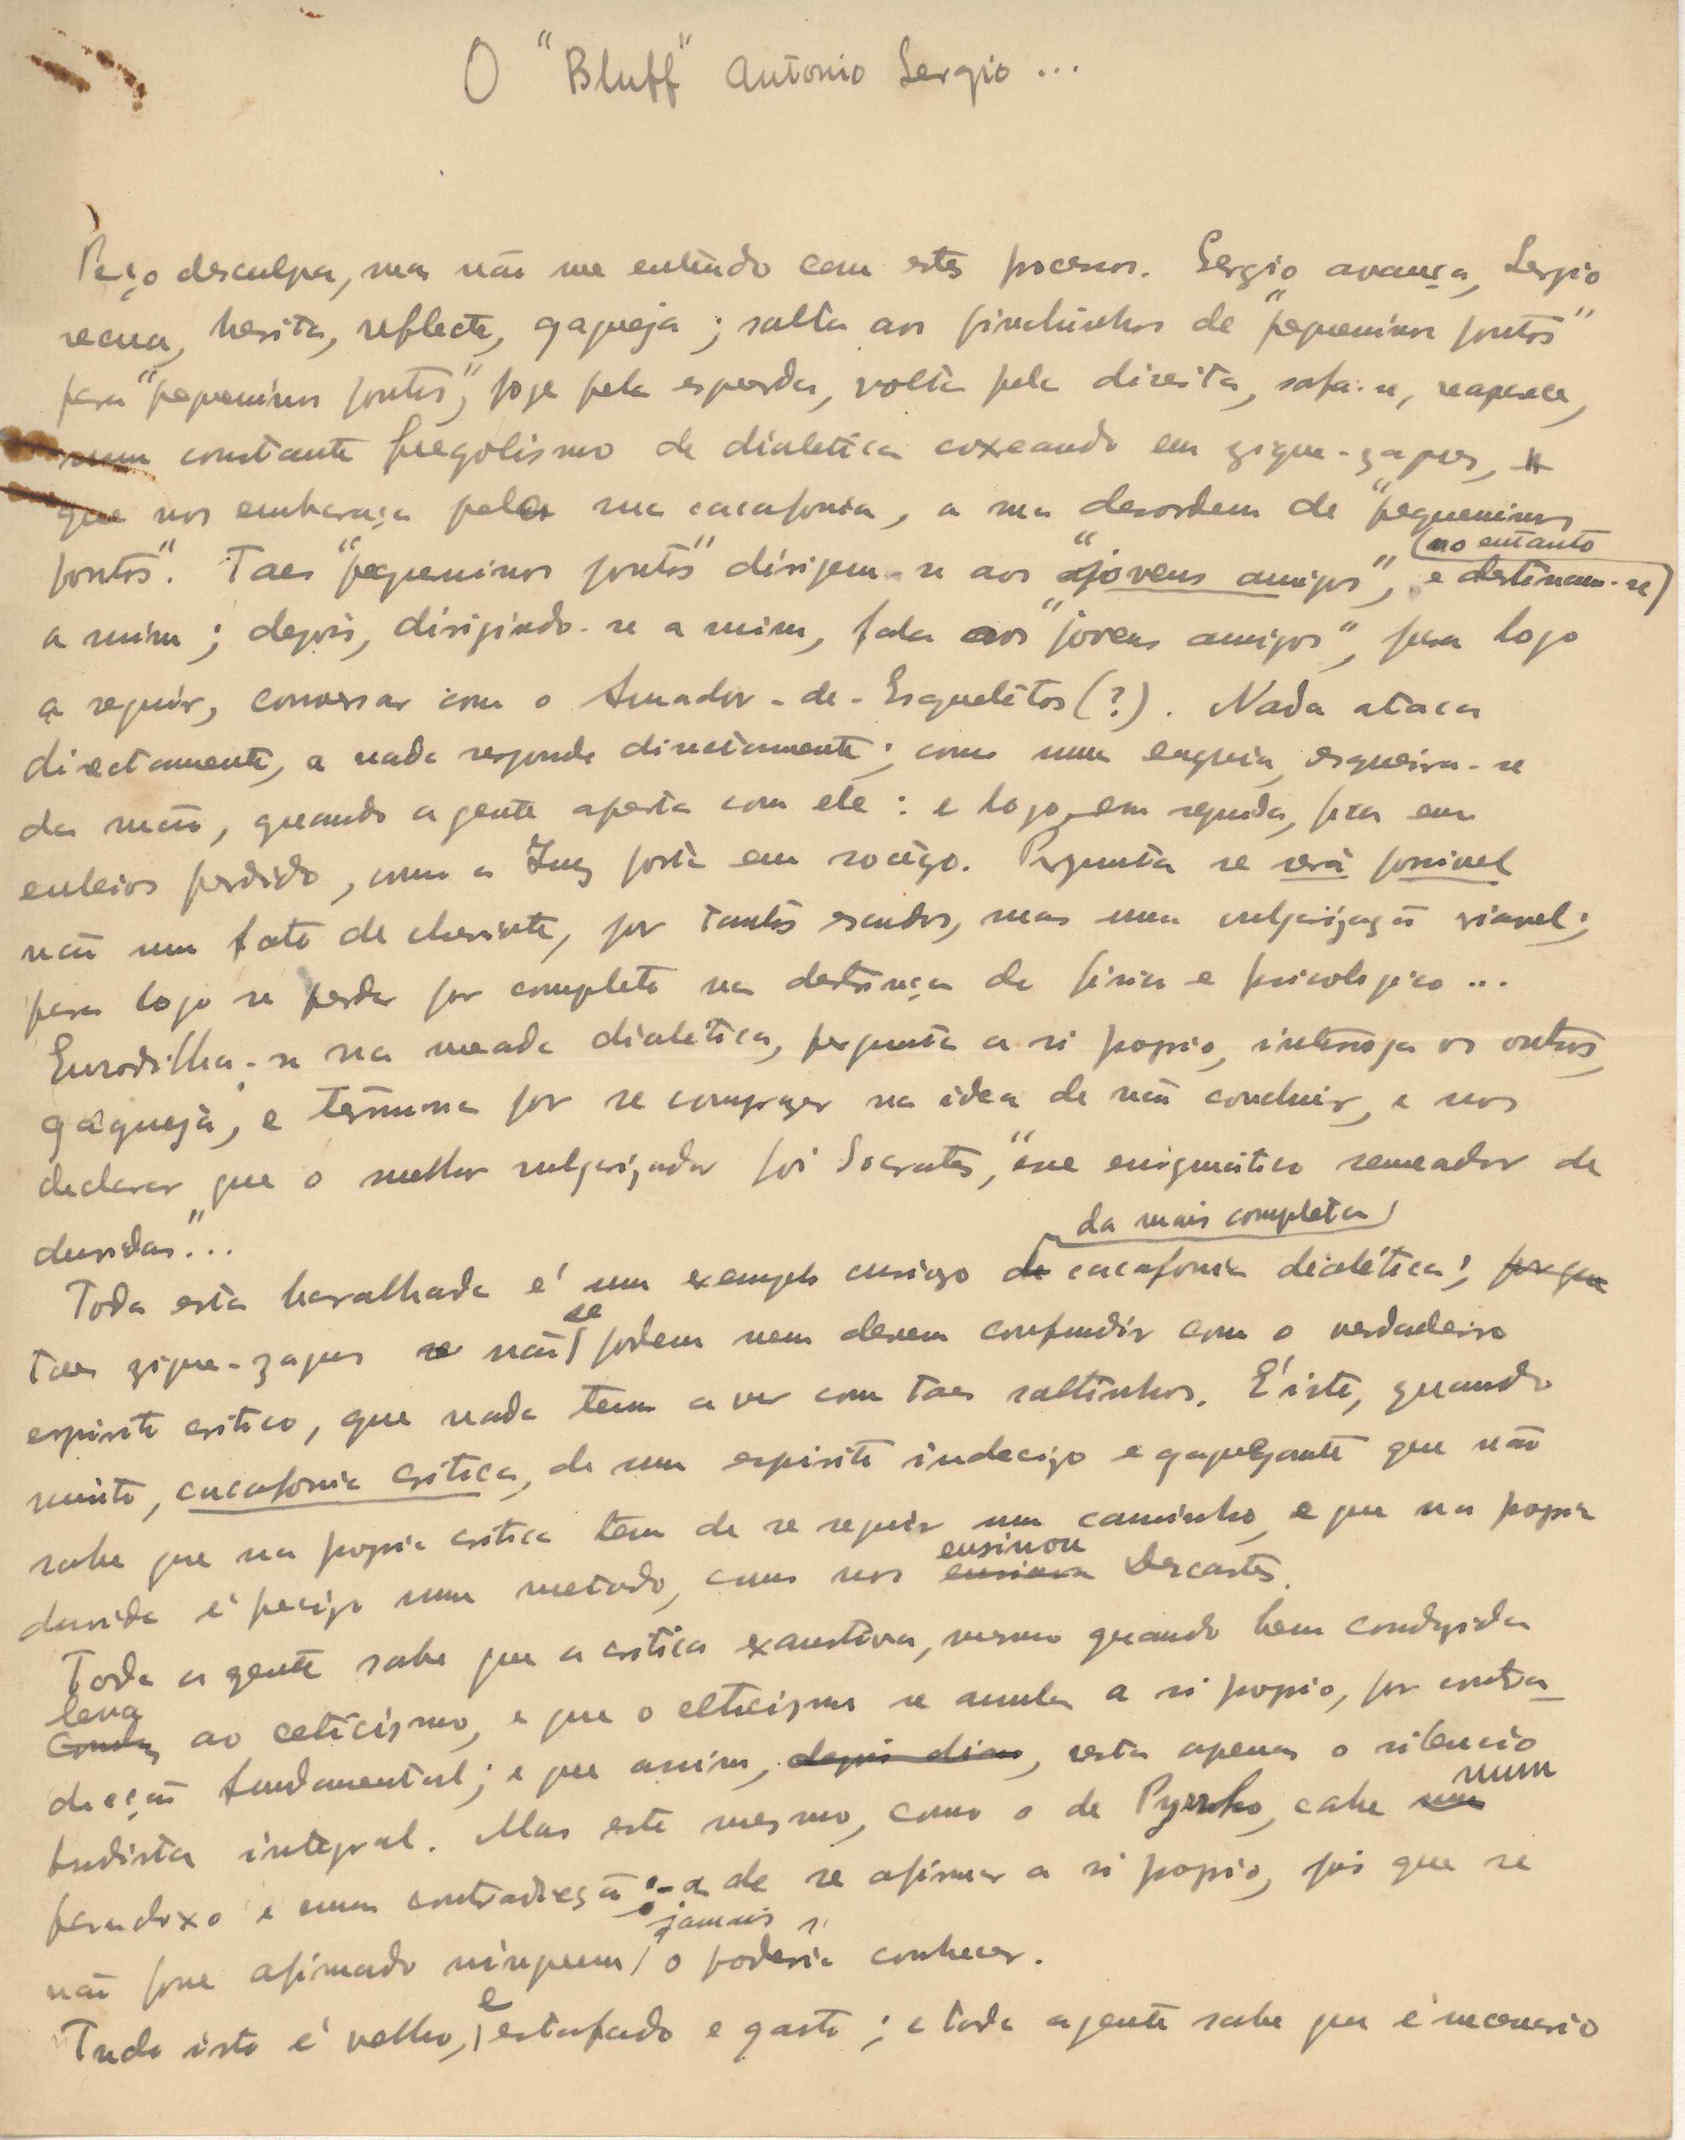 O "Bluff" Antonio Sergio ...
Peço desculpa, mas não me entendo com estes processos. Sergio avança, Sergio
recua, hesita, reflecte, gagueja; salta aos pinchinhos de "pequeninos pontos"
para "pequeninos pontos", foge pela esquerda, volta pela direita, safa-se, reaparece,
num constante fregolismo de dialetica coxeando em zigue-zagues,
que nos embaraça pela sua cacafonia, a sua desordem de "pequeninos
pontos". Taes "pequeninos pontos" dirigem-se aos "jovens amigos", e no entanto destinam-se
a mim; depois, dirigindo-se a mim, fala aos "jovens amigos", para logo
a seguir, conversar com o Amador-de-Esqueletos (?). Nada ataca
directamente, a nada responde directamente; como uma enguia, esgueira-se
da mão, quando a gente aperta com ele: e logo, em seguida, fica em
enleios perdido, como a Inez posta em socêgo. Pergunta se será possivel
não um fato de cheviote, por tantos escudos, mas uma vulgarização viavel;
para logo se perder por completo na destrinça de fisico e psicologico ...
Enrodilha-se na meada dialetica, pergunta a si proprio, interroga os outros,
gagueja, e termina por se comprazer na idea de não concluir, e nos
declarar que o melhor vulgarizador foi Socrates, "esse enigmático semeador de
duvidas"...
Toda esta baralhada é um exemplo curiozo da mais completa cacafonia dialética; porque
taes zigue-zagues não se podem nem devem confundir com o verdadeiro
espirito critico, que nada tem a ver com taes saltinhos. É isto, quando
muito, cacafonia critica, de um espirito indecizo e gaguejante que não
sabe que na propria critica tem de se seguir um caminho, e que na propria
duvida é precizo um metodo, como nos ensinou Descartes.
Toda a gente sabe que a critica exaustiva, mesmo quando bem conduzida
leva ao ceticismo, e que o ceticismo se anula a si proprio, por contra-
dicção fundamental; e que assim, resta apenas o silencio
budista integral. Mas este mesmo, como o de Pyrrho, cahe num
paradoxo e numa contradicção:- a de se afirmar a si proprio, pois que se
não fosse afirmado ninguem jamais o poderia conhecer.
Tudo isto é velho, e estafado e gasto; e toda a gente sabe que é necessario